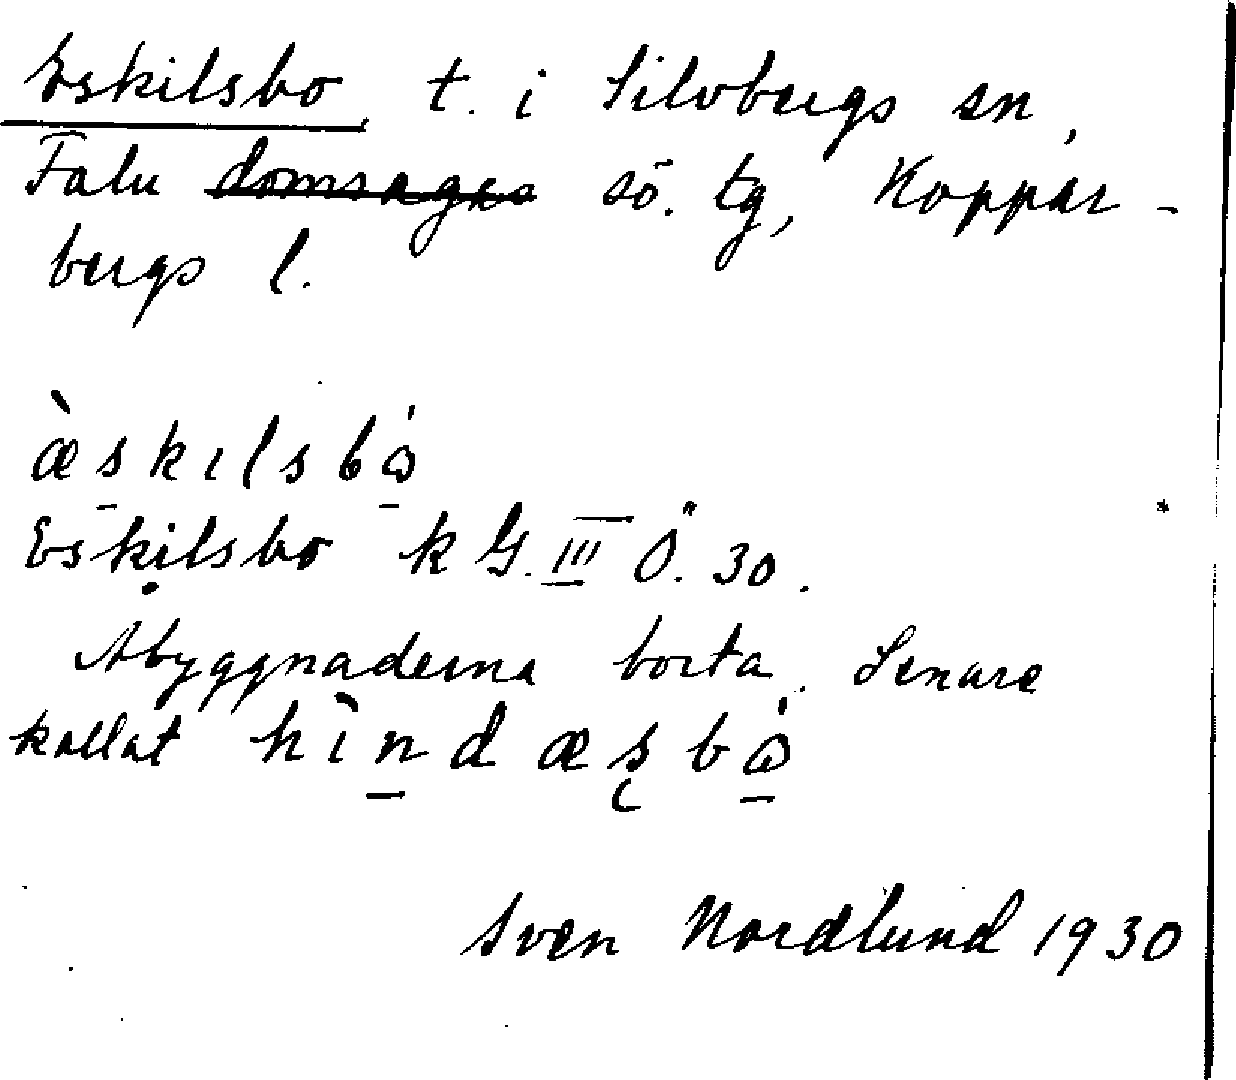 Eskilsbo, t. i Silvbergs sn,
Falu domsagas sö. tg, Koppar-
bergs l.
æ̀skılsbὼ
Eskilsbo k G. III Ö. 30.
Åbyggnaderna borta. Senare
kallat hìndæsbὼ
Sven Nordlund 1930